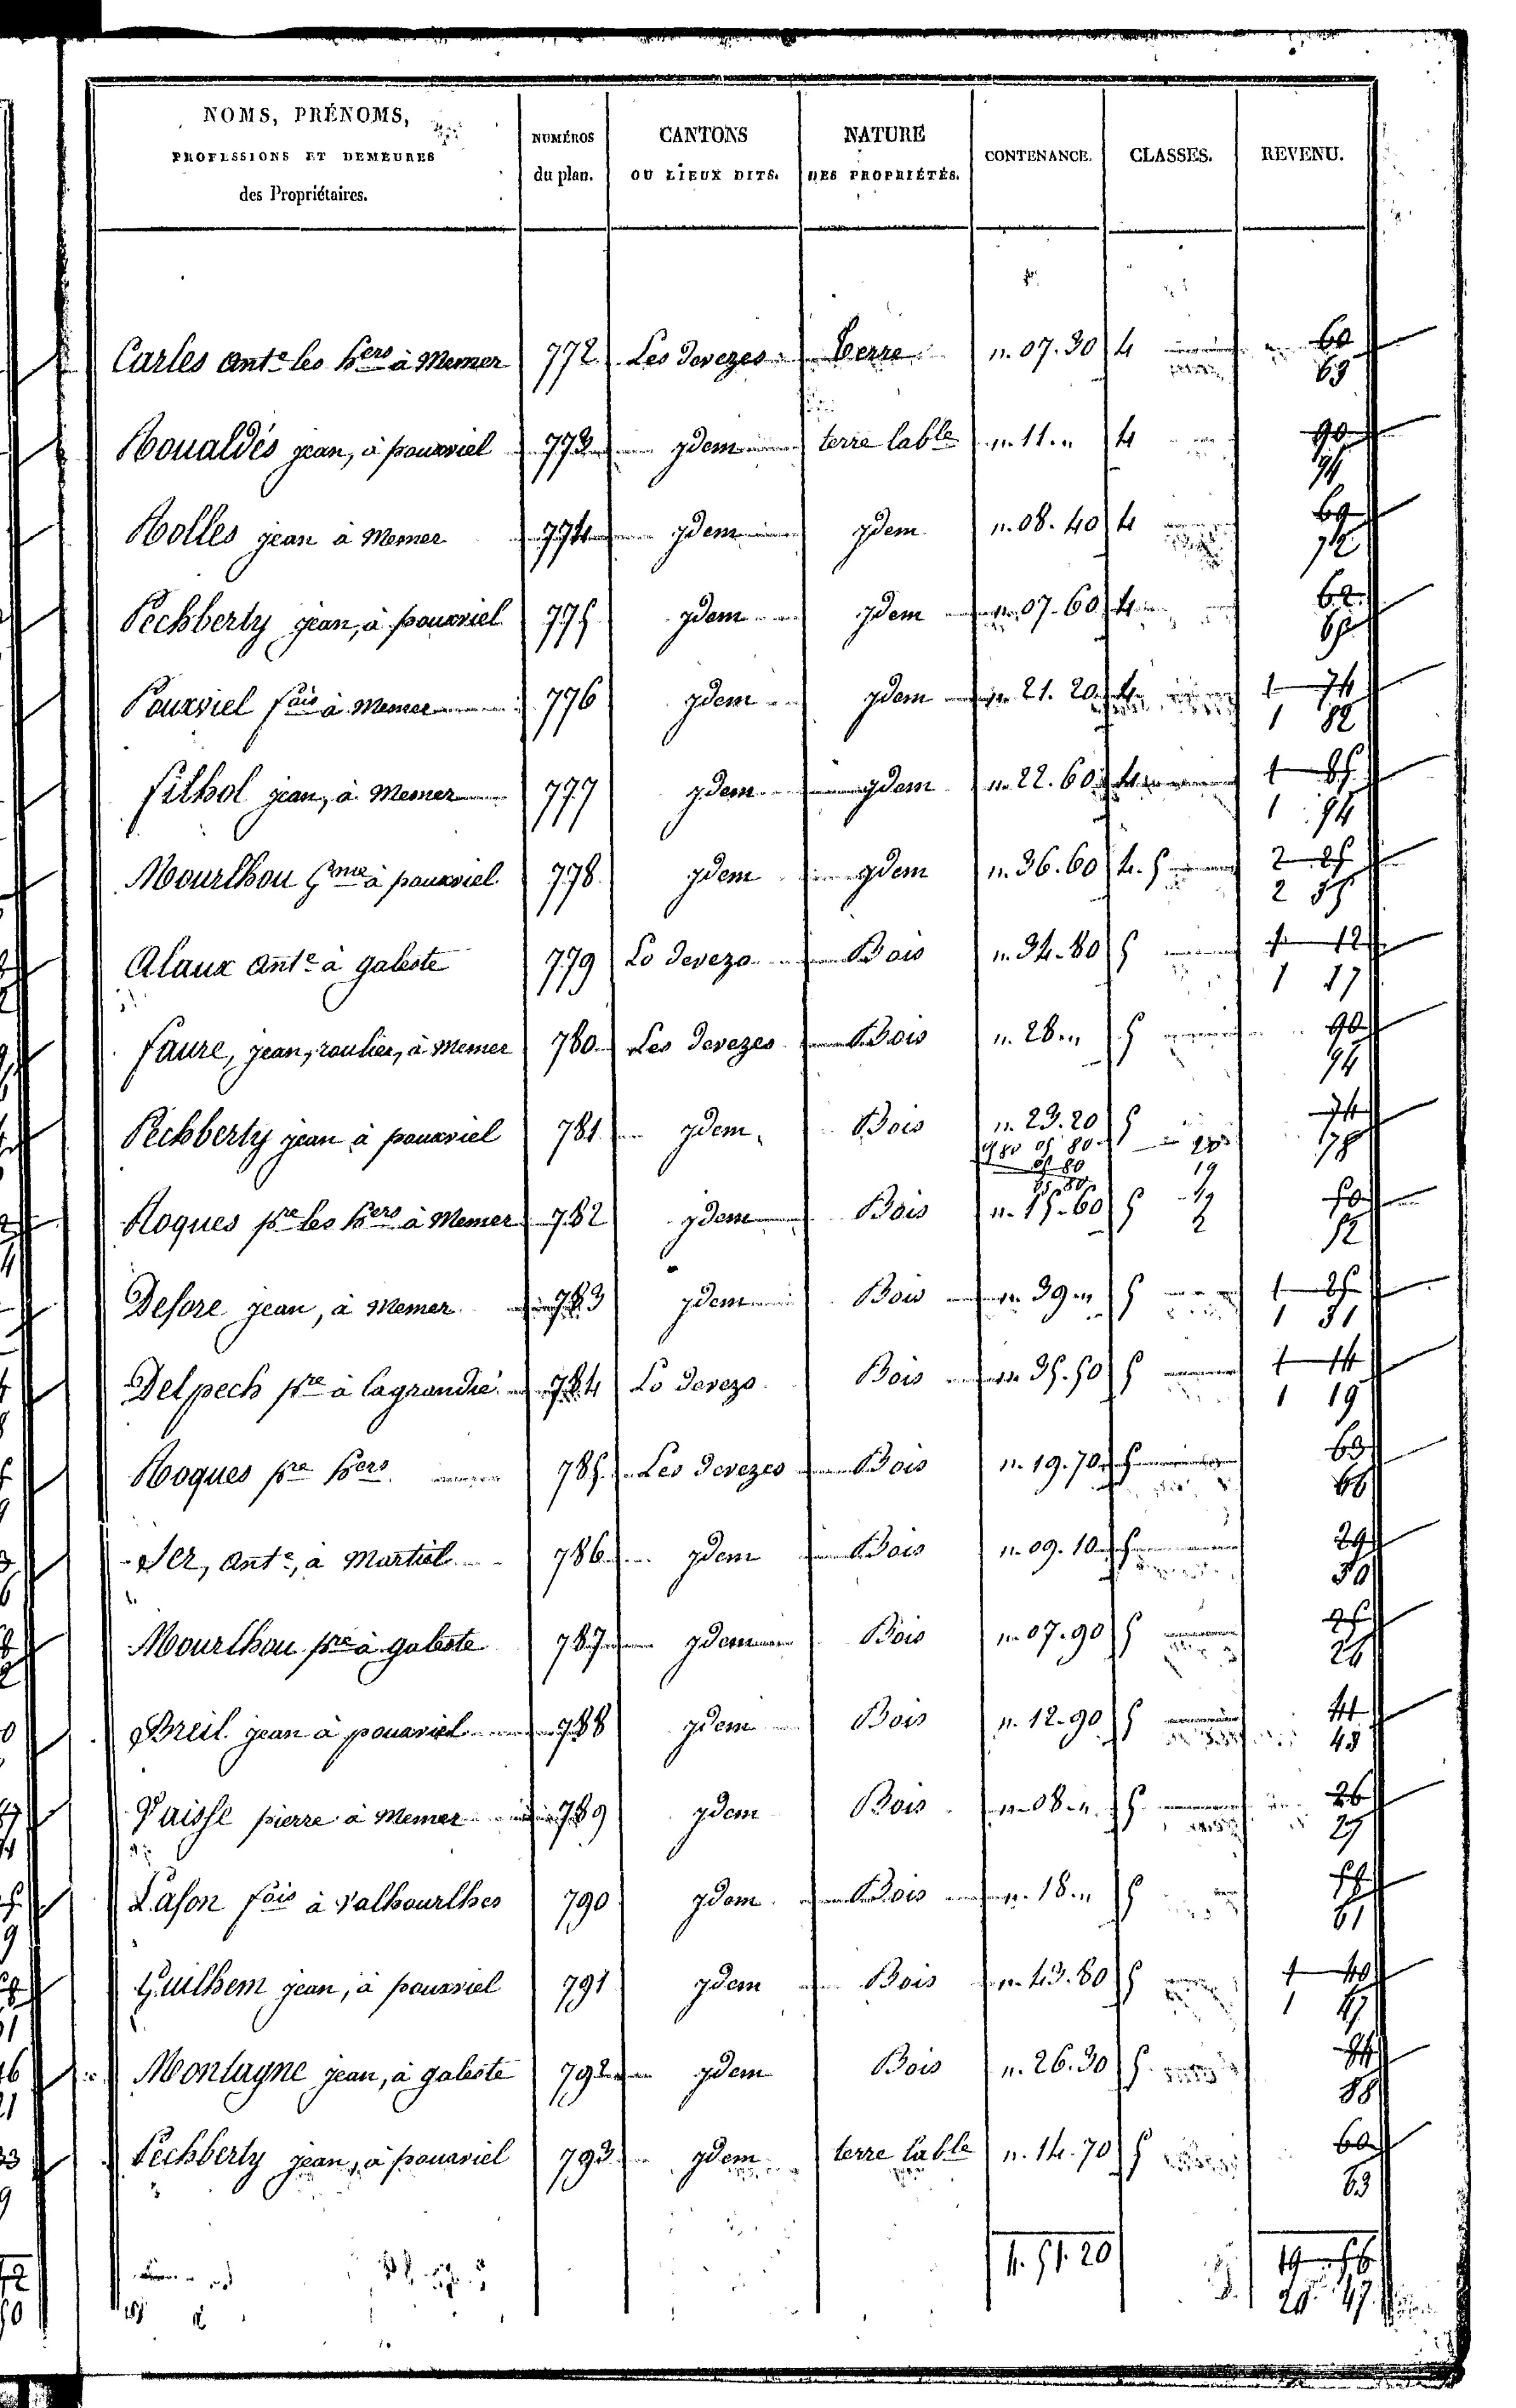 NOMS, PRÉNOMS,
PROFESSIONS ET DEMEURES
des Propriétaires.
NUMÉROS
du plan.
CANTONS
OU LIEUX DITS.
NATURE
DES PROPRIÉTÉS.
CONTENANCE.
CLASSES.
REVENU.
Carles Ant^e les h^ers à Memer 772 Les devezes terre n. 07. 30 4 60
63
Roualdés jean, à pouxviel 773 ydem terre lab^le n. 11. n 4 90
94
Rolles jean à Memer 774 ydem ydem n. 08. 40 4 69
72
Pechberty jean, à pouxviel 775 ydem ydem n. 07. 60 4 62
65
Pouxviel f^ois à Memer 776 ydem ydem n. 21. 20 4 1 74
1 82
filhol jean, à Memer 777 ydem ydem n. 22. 60 4 1 85
1 94
Mourlhou G^me à pouxviel 778 ydem ydem n. 36. 60 4. 5 2 25
2 35
Alaux Ant^e à galeste 779 Lo devezo Bois n. 34. 80 5 1 12
1 17
faure, jean, roulier, à Memer 780 Les devezes Bois n. 28. n 5 90
94
Pechberty jean à pouxviel 781 ydem Bois n. 23. 20 5 74
78
Roques p^re les h^ers à Memer 782 ydem Bois n. 15. 60 5 50
52
Defore jean, à Memer 783 ydem Bois n. 39. n 5 1 25
1 31
Delpech p^re à lagrandie 784 Lo devezo Bois n. 35. 50 5 1 14
1 19
Roques p^re h^ers 785 Les devezes Bois n. 19. 70 5 63
66
Ser, Ant^e, à Martiel 786 ydem Bois n. 09. 10 5 29
30
Mourlhou p^re à galeste 787 ydem Bois n. 07. 90 5 25
26
Breil jean à pouxviel 788 ydem Bois n. 12. 90 5 41
43
Vaisse pierre à Memer 789 ydem Bois n. 08. n 5 26
27
Lafon f^ois à valhourlhes 790 ydem Bois n. 18. n 5 58
61
Guilhem jean, à pouxviel 791 ydem Bois n. 43. 80 5 1 40
1 47
Montagne jean, à galeste 792 ydem Bois n. 26. 30 5 84
88
Pechberty jean, à pouxviel 793 ydem terre lab^le n. 14. 70 5 60
63
4. 51. 20 19 56
20 47